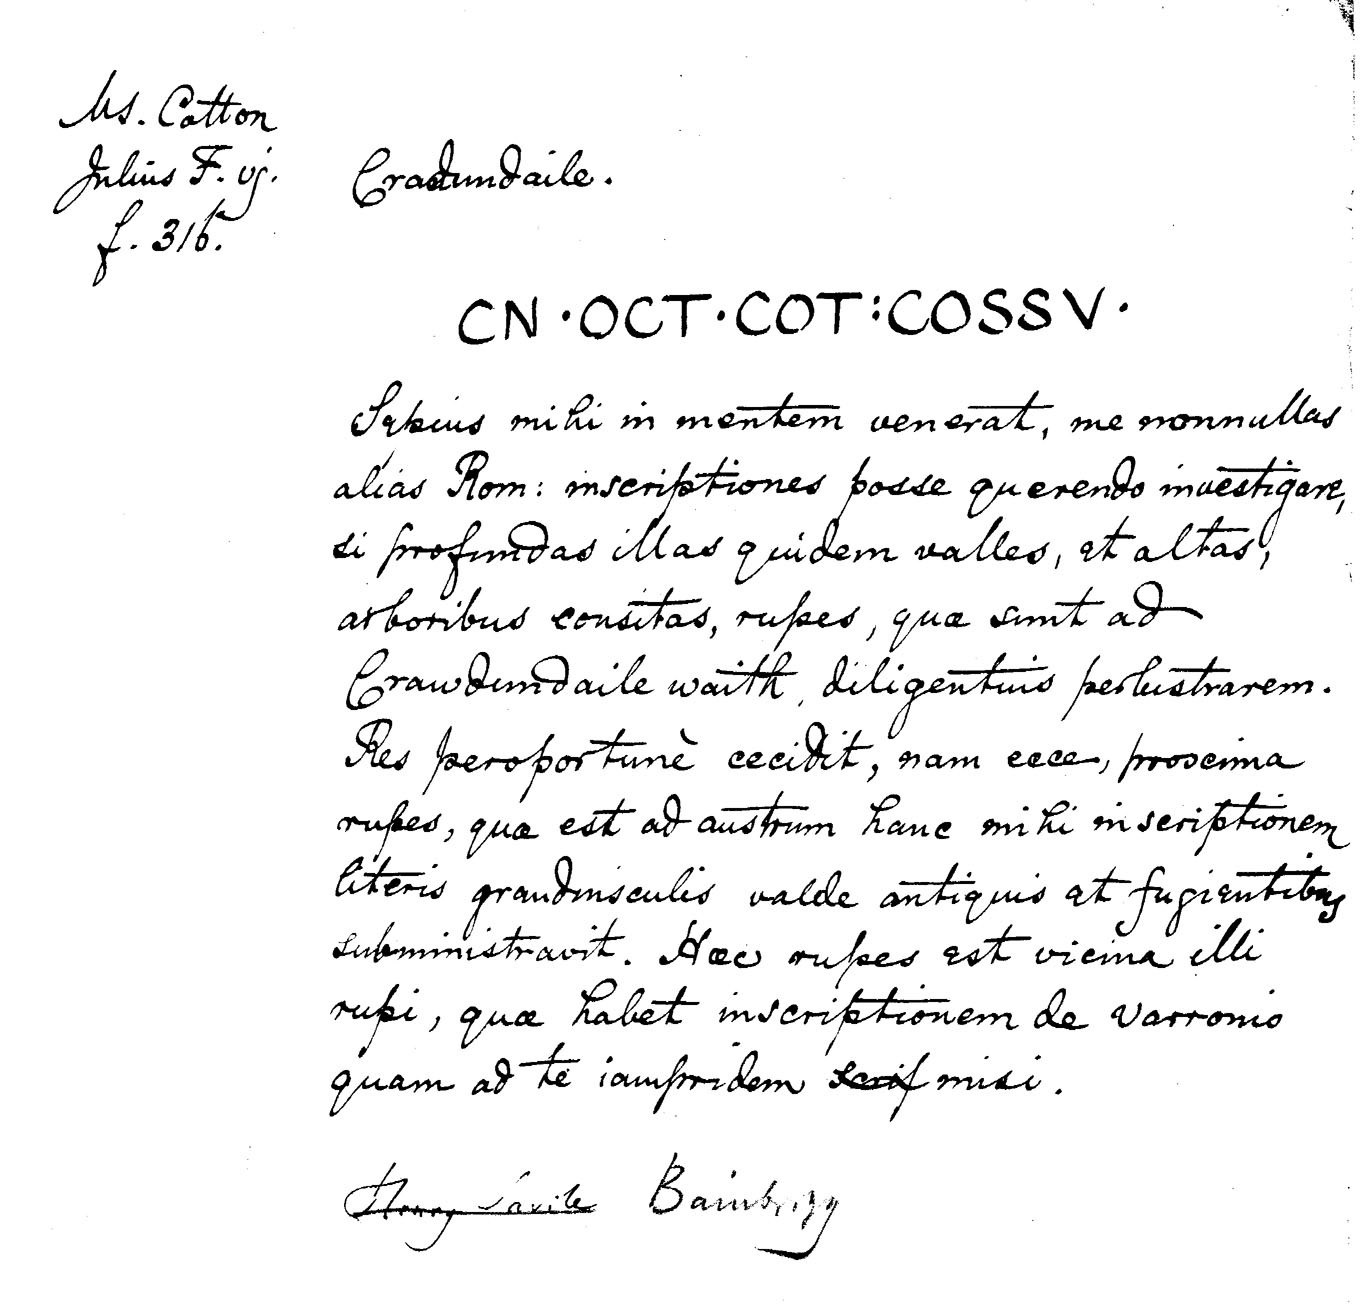 Ms. Cotton
Julius F. vj.
f. 316.
Cradundaile.
CN · OCT · COT : COSSV ·
Sępius mihi in mentem venerat, me nonnullas
alias Rom: inscriptiones posse querendo investigare,
si profundas illas quidem valles, et altas,
arboribus consitas, rupes, quæ sunt ad
Crawdundaile waith, diligentius perlustrarem.
Res peroportunè cecidit, nam ecce, proxima
rupes, quæ est ad austrum hanc mihi inscriptionem
literis grandiusculis valde antiquis et fugientibus
subministravit. Hæc rupes est vicina illi
rupi, quæ habet inscriptionem de Varronis
quam ad te iampridem scrip misi.
Henry Savile Bainbrigg